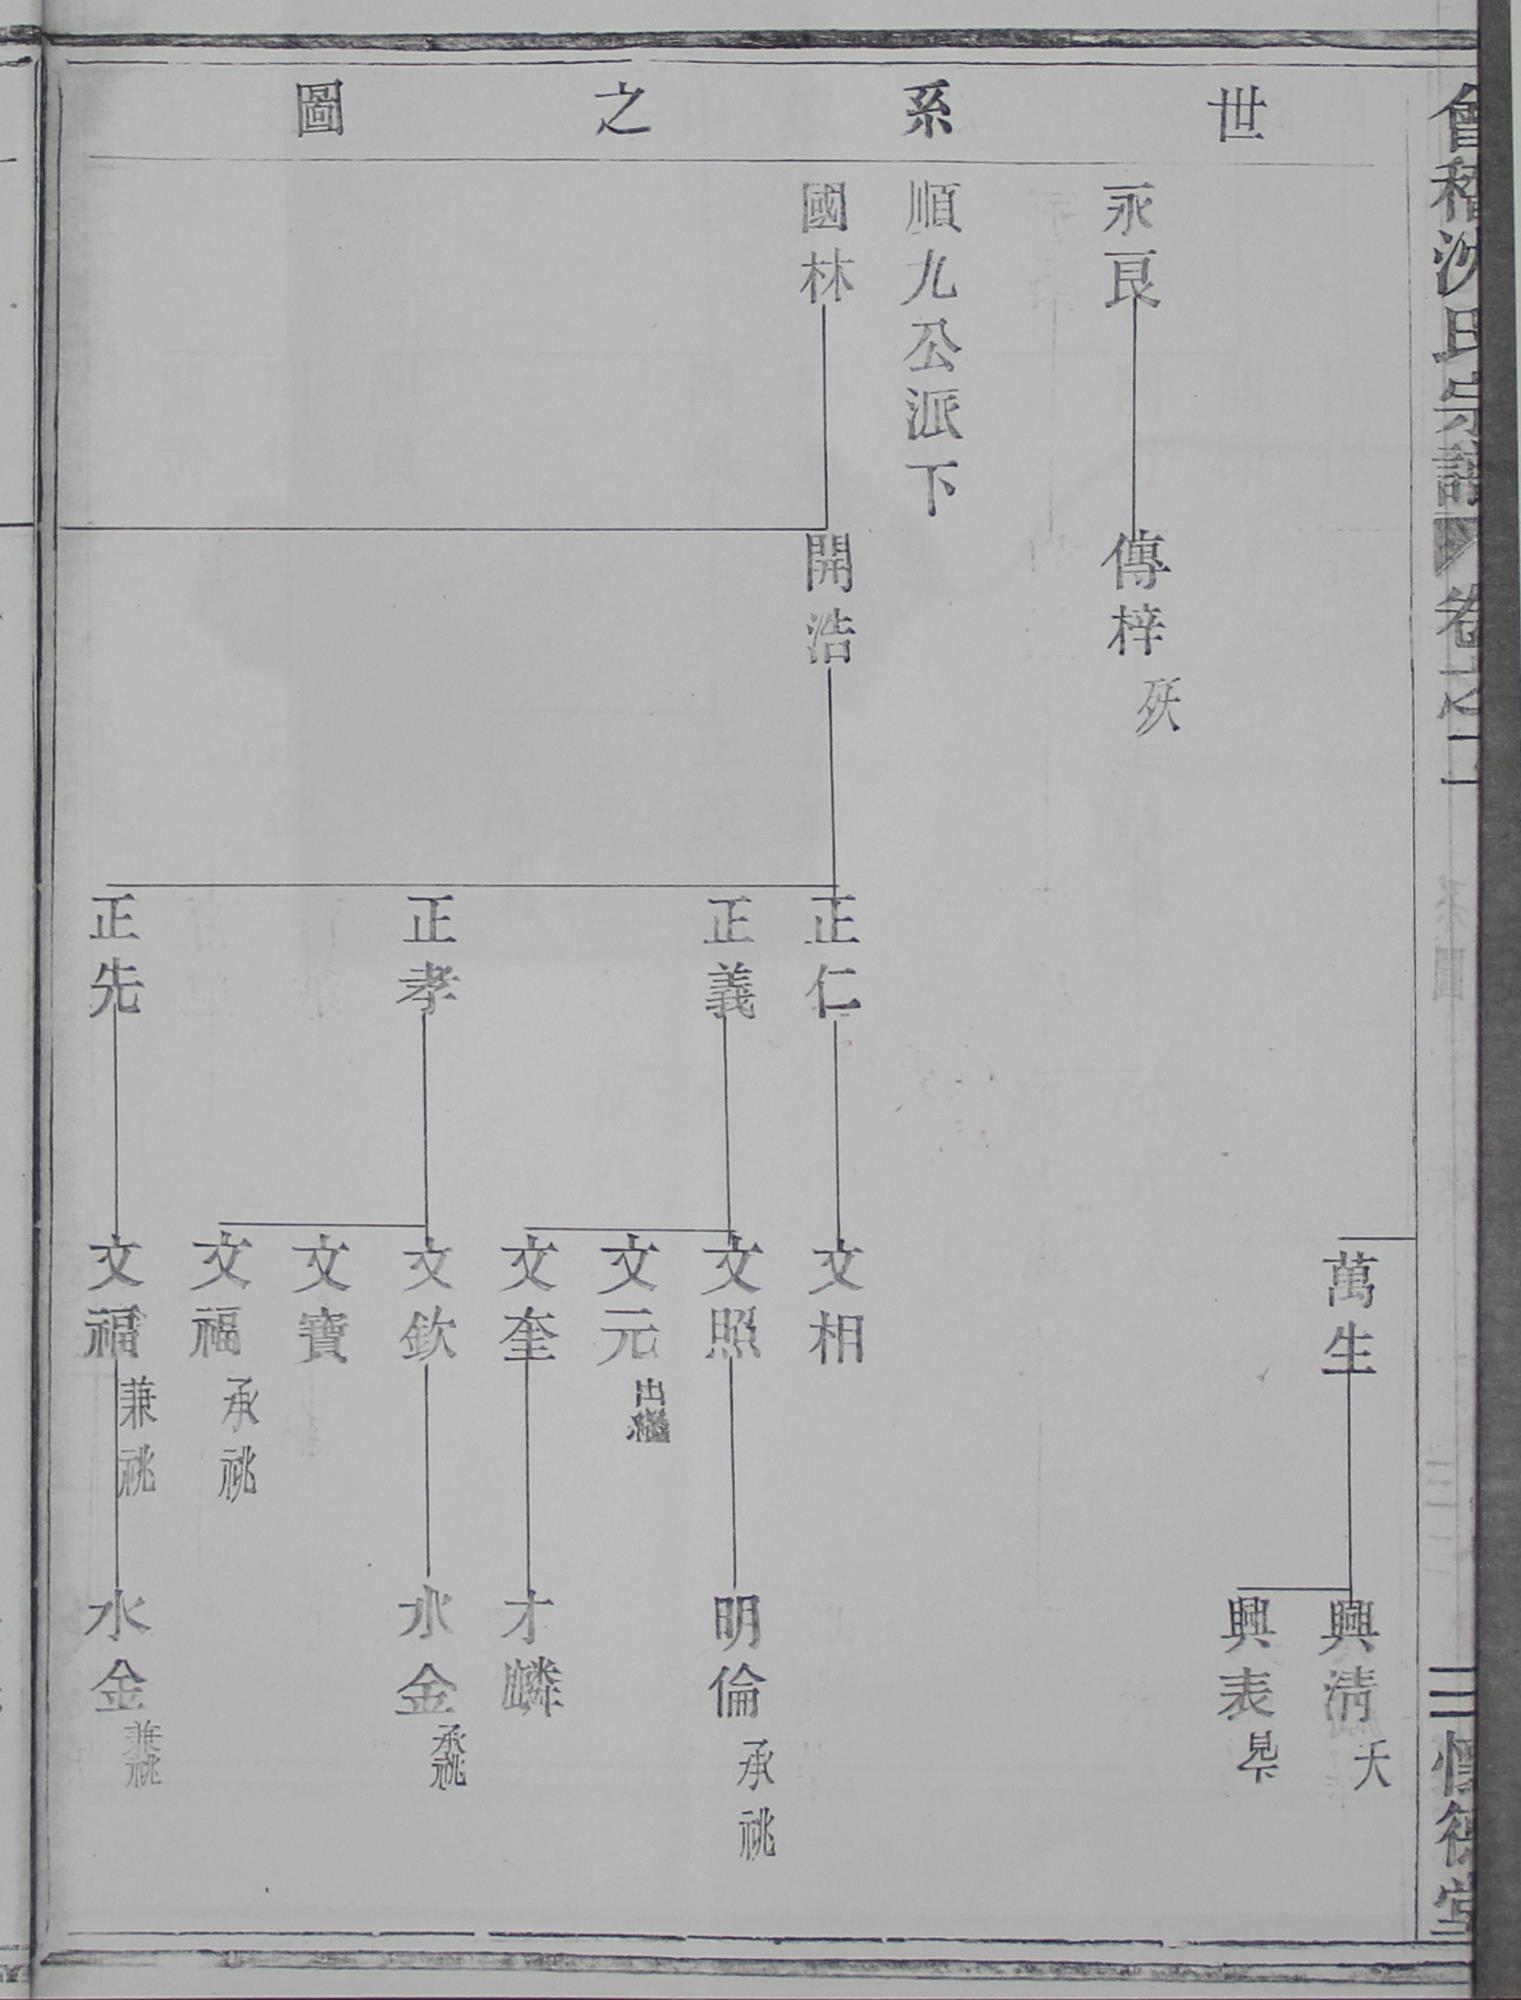 會稽沈氏宗譜 卷之二 系圖 三 懷德堂
世系之圖
萬生
興淸 夭
興表 見下
永良
傳梓 殀
順九公派下
國林
開浩
正仁
文相
正義
文照
明倫 承祧
文元 出繼
文奎
才麟
正孝
文欽
水金 承祧
文寶
文福 承祧
正先
文福 兼祧
水金 兼祧